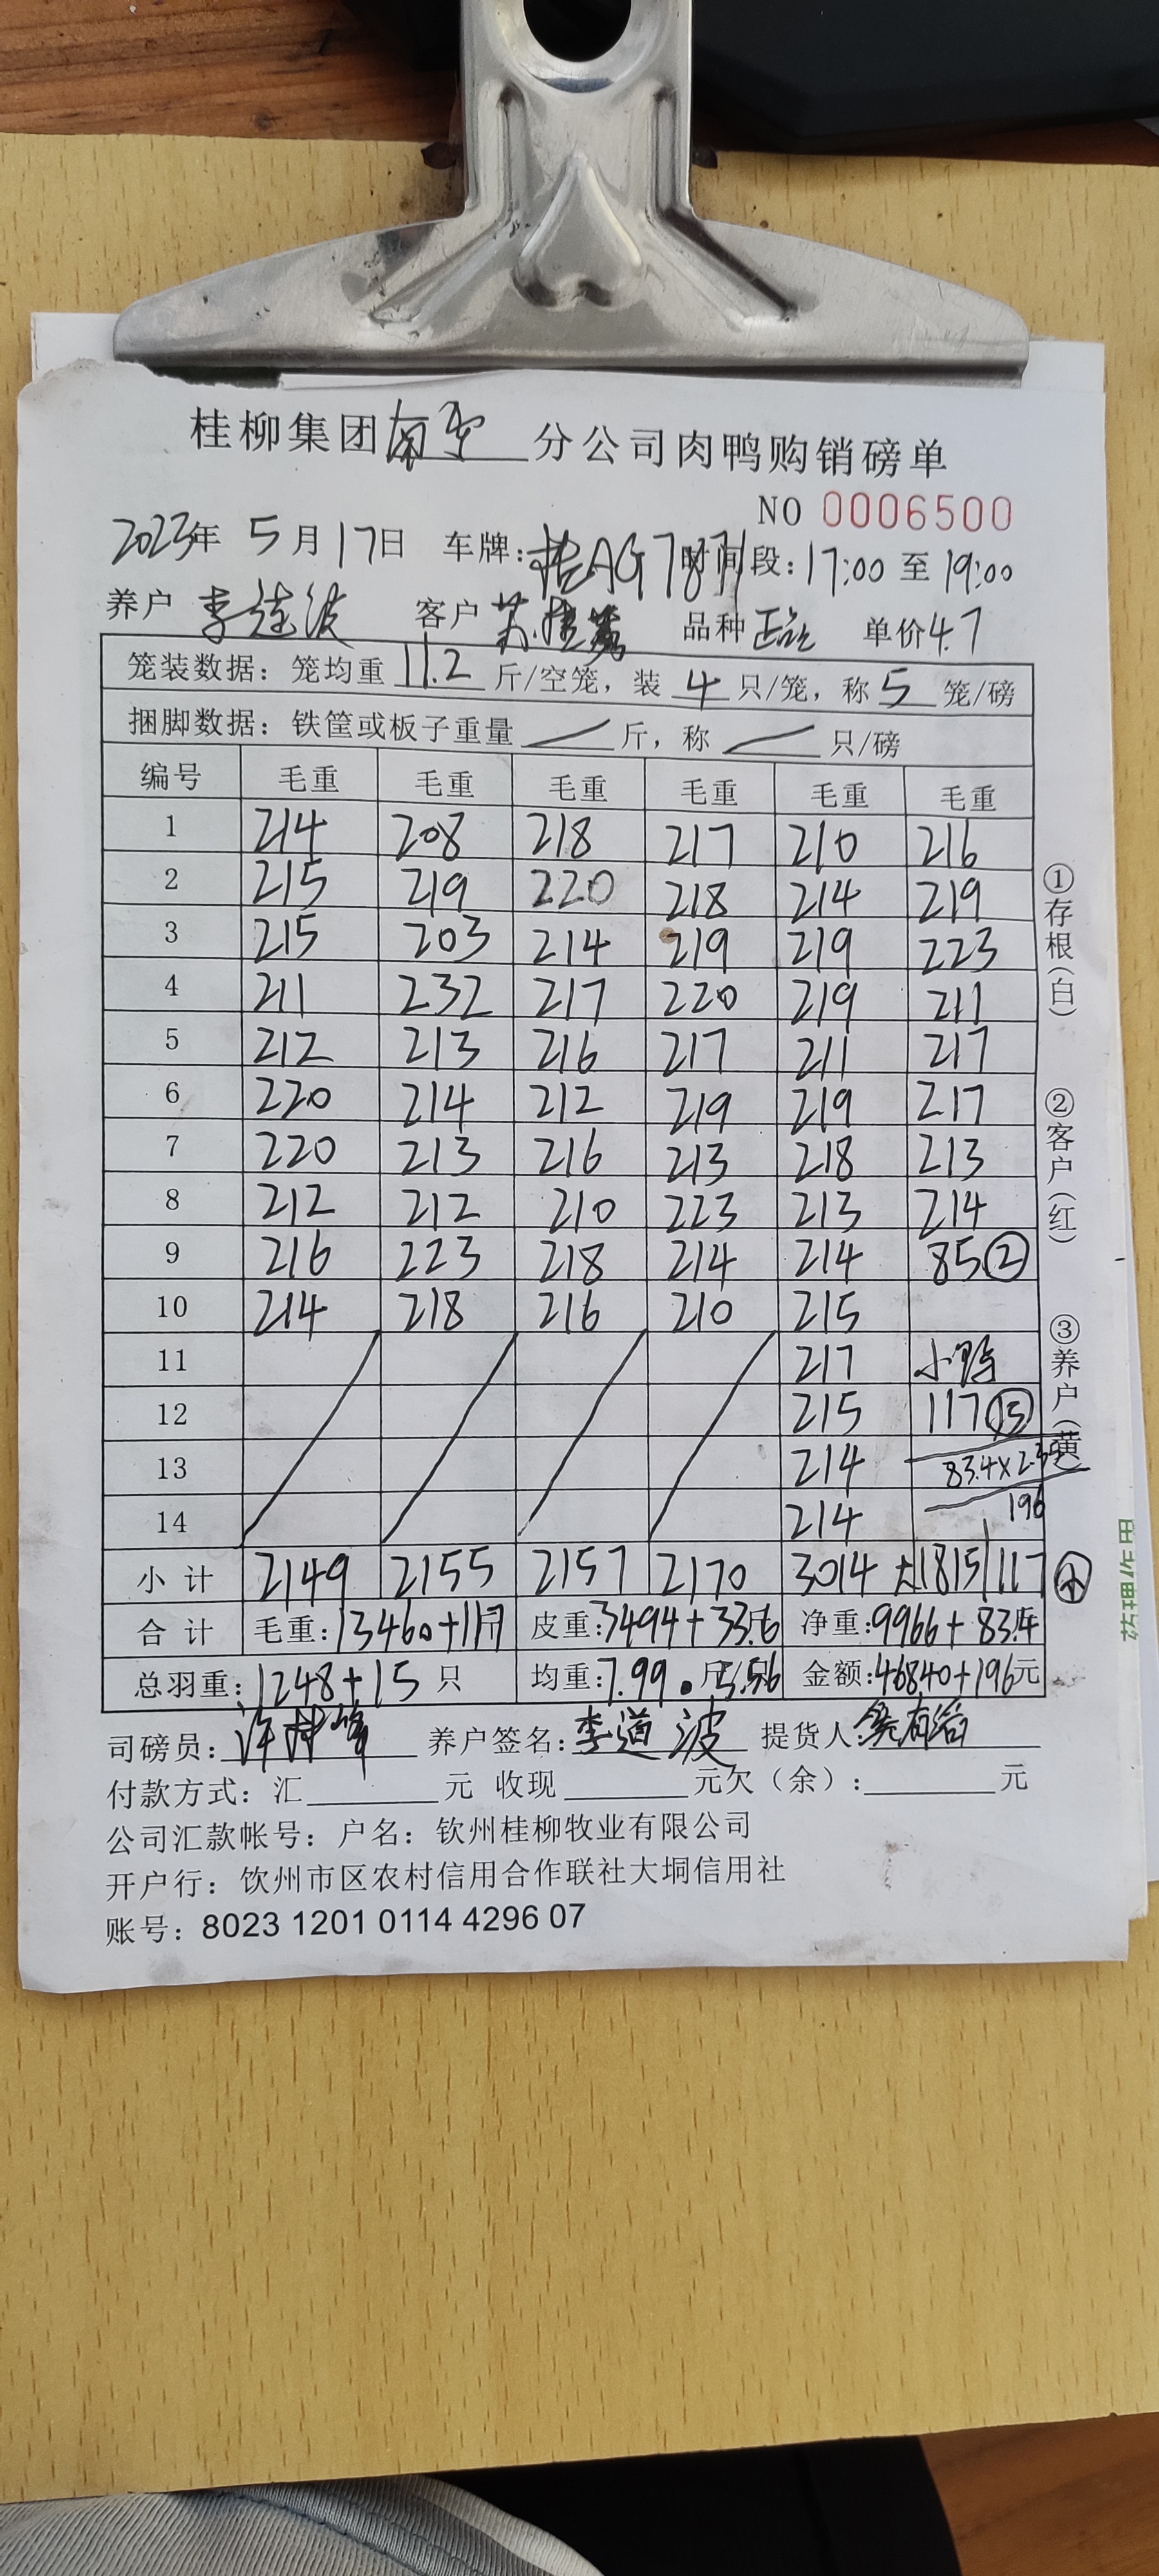 桂柳集团南宁分公司肉鸭购销磅单
NO 0006500
2023年 5月17日 车牌：桂AG7871 时间段：17:00 至 19:00
养户 李道波 客户 苏桂 品种 单价4.7
笼装数据：笼均重 11.2 斤/空笼，装 4 只/笼，称 5 笼/磅
捆脚数据：铁筐或板子重量 / 斤，称 / 只/磅
编号 毛重 毛重 毛重 毛重 毛重 毛重
1 214 208 218 217 210 216
2 215 219 220 218 214 219
3 215 203 214 219 219 223
4 211 232 217 220 219 211
5 212 213 216 217 211 217
6 220 214 212 219 219 217
7 220 213 216 213 218 213
8 212 212 210 223 213 214
9 216 223 218 214 214 85②
10 214 218 216 210 215
11 217 小鸭
12 215 117⑮
13 214 83.4×2.35
14 214 196
小计 2149 2155 2157 2170 3014 大1815 117 小
合计 毛重：13460+117斤 皮重：3494+33.6 净重：9966+83.4
总羽重：1248+15 只 均重：7.99 5.56 金额：46840+196元
司磅员： 养户签名：李道波 提货人：
付款方式：汇 元 收现 元欠（余）： 元
公司汇款帐号：户名：钦州桂柳牧业有限公司
开户行：饮州市区农村信用合作联社大垌信用社
账号：8023 1201 0114 4296 07
①存根（白）
②客户（红）
③养户（黄）